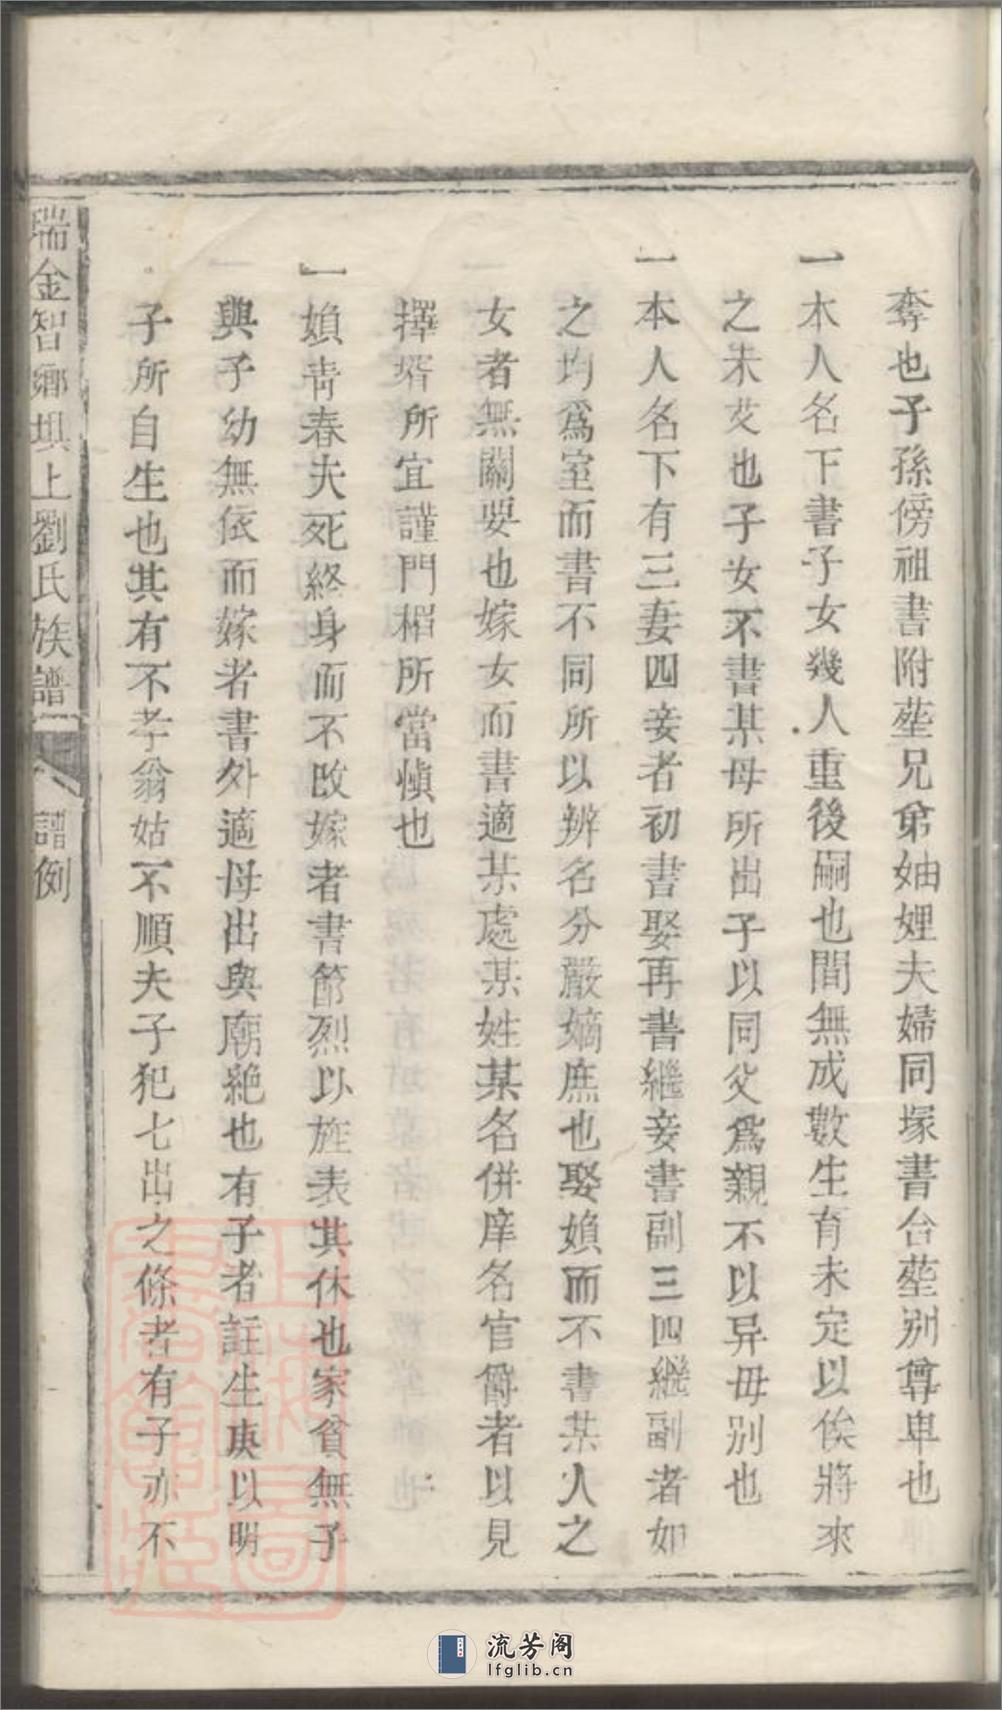 奪也子孫傍祖書附塟兄弟妯娌夫婦同塚書合塟别尊卑也
一本人名下書子女幾人重後嗣也間無成數生育未定以俟將來
之未艾也子女不書某母所出子以同父爲親不以异母别也
一本人名下有三妻四妾者初書娶再書繼妾書副三四繼副者如
之均爲室而書不同所以辨名分嚴嫡庶也娶媍而不書某人之
女者無關要也嫁女而書適某處某姓某名併庠名官爵者以見
擇壻所宜謹門楣所當慎也
一媍靑春夫死終身而不改嫁者書節烈以旌表其休也家貧無子
與子幼無依而嫁者書外適母出與廟絶也有子者註生庚以明
子所自生也其有不孝翁姑不順夫子犯七出之條者有子亦不
瑞金智鄉垻上劉氏族譜 譜例
上海圖書館藏
流芳阁
lfglib.cn